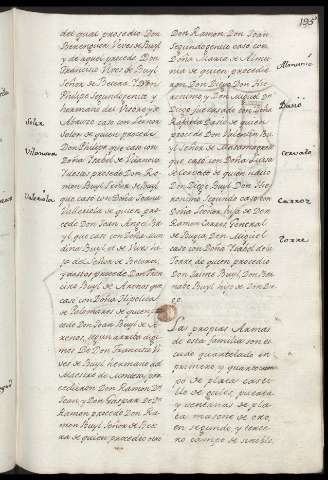 195
del qual procedio Don
Berenguer Vives de Buyl
y de aquel procede Don
Francisco Vives de Buyl
Señor de Bétera y Don
Philipe segundogenito y
hermano del Visorey de
Abauzo caso con Leonor
Soler de quien procede
Don Philipe que caso con
Doña Isabel de Vilanova
Ydestas procede Don Ra-
mon Buyl Señor de Buyl
que caso con Doña Juana
Valleriola de quien pro-
cede Don Juan Angel Bu-
yl que caso con Doña Lau-
dina Buyl
del Señor de Betera,
y destos procede Don Fran-
cisco Buyl de Arenos que
caso con Doña Hipolita
de Palomares de quien pro-
cede Don Juan Buyl de A-
renos, segun arriba digi-
mos De Don Francisco Vi-
ves de Buyl hermano del
Maestre de Montesa pro-
cedieron Don Ramon Dn
Juan y Don Gaspar de Dn
Ramon procede Don Ra-
mon Buyl Señor de Bete-
ra de quien procedio otro
Soler
Vilanova
Valeriola
Don Ramon. Don Juan
Segundogenito caso con
Doña Maria de Almu-
nia de quien procedie-
ron Don Diego Don Hie-
ronimo y Don Miguel de
Diego
Doña
de quien
procede Don Valentin Bu-
yl Señor de
que caso con Doña Luisa
de Cervato de quien nacio
Don Diego Buyl Don Hie-
ronimo segundo caso con
Doña hija de Don
Ramon Carroz General
de Bugia Don Miguel
caso con Doña Isabel de la
Torre de quien procedio
Don Jaime Buyl Don Ber-
nabe Buyl hijo de Don Die-
go.
Las propias Armas
de esta familia son es-
cudo quartelado en
primero y quarto cam-
po de plata casti-
llo de gules, puertas
y ventanas de pla-
ta masone de oro,
en segundo y terce-
ro campo de sinoble
Almunia
Cervato
Carroz
Torre